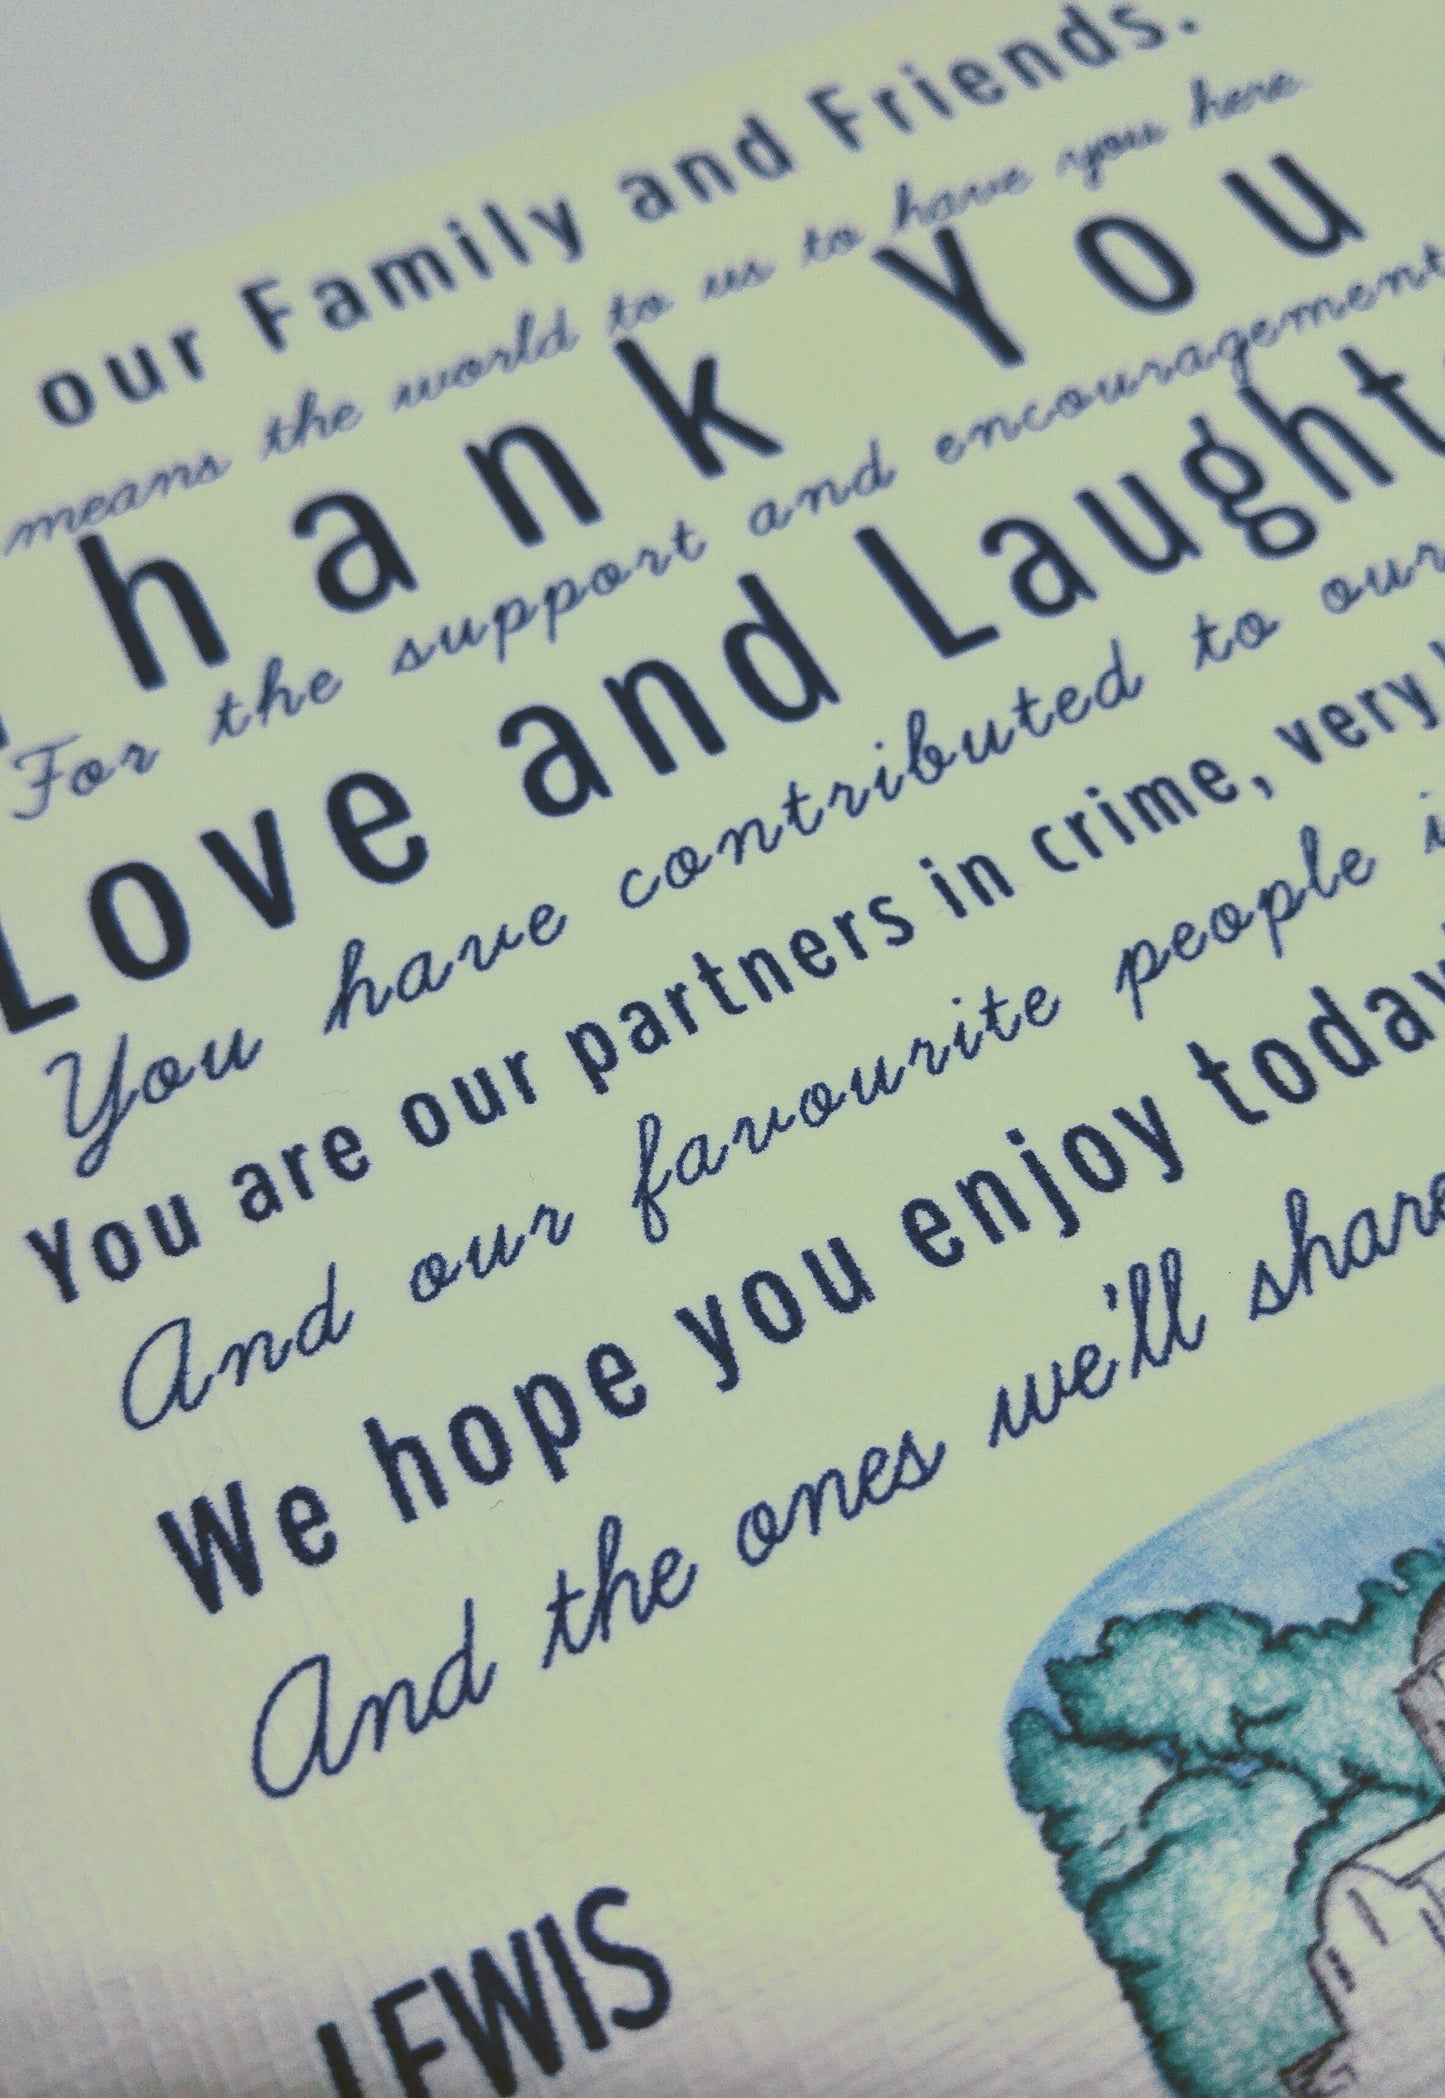 our Family and Friends.
means the world to us to have you here
hank You
For the support and encouragement
Love and Laught
You have contributed to our
You are our partners in crime, very
And our favourite people
We hope you enjoy today
And the ones we'll share
LEWIS